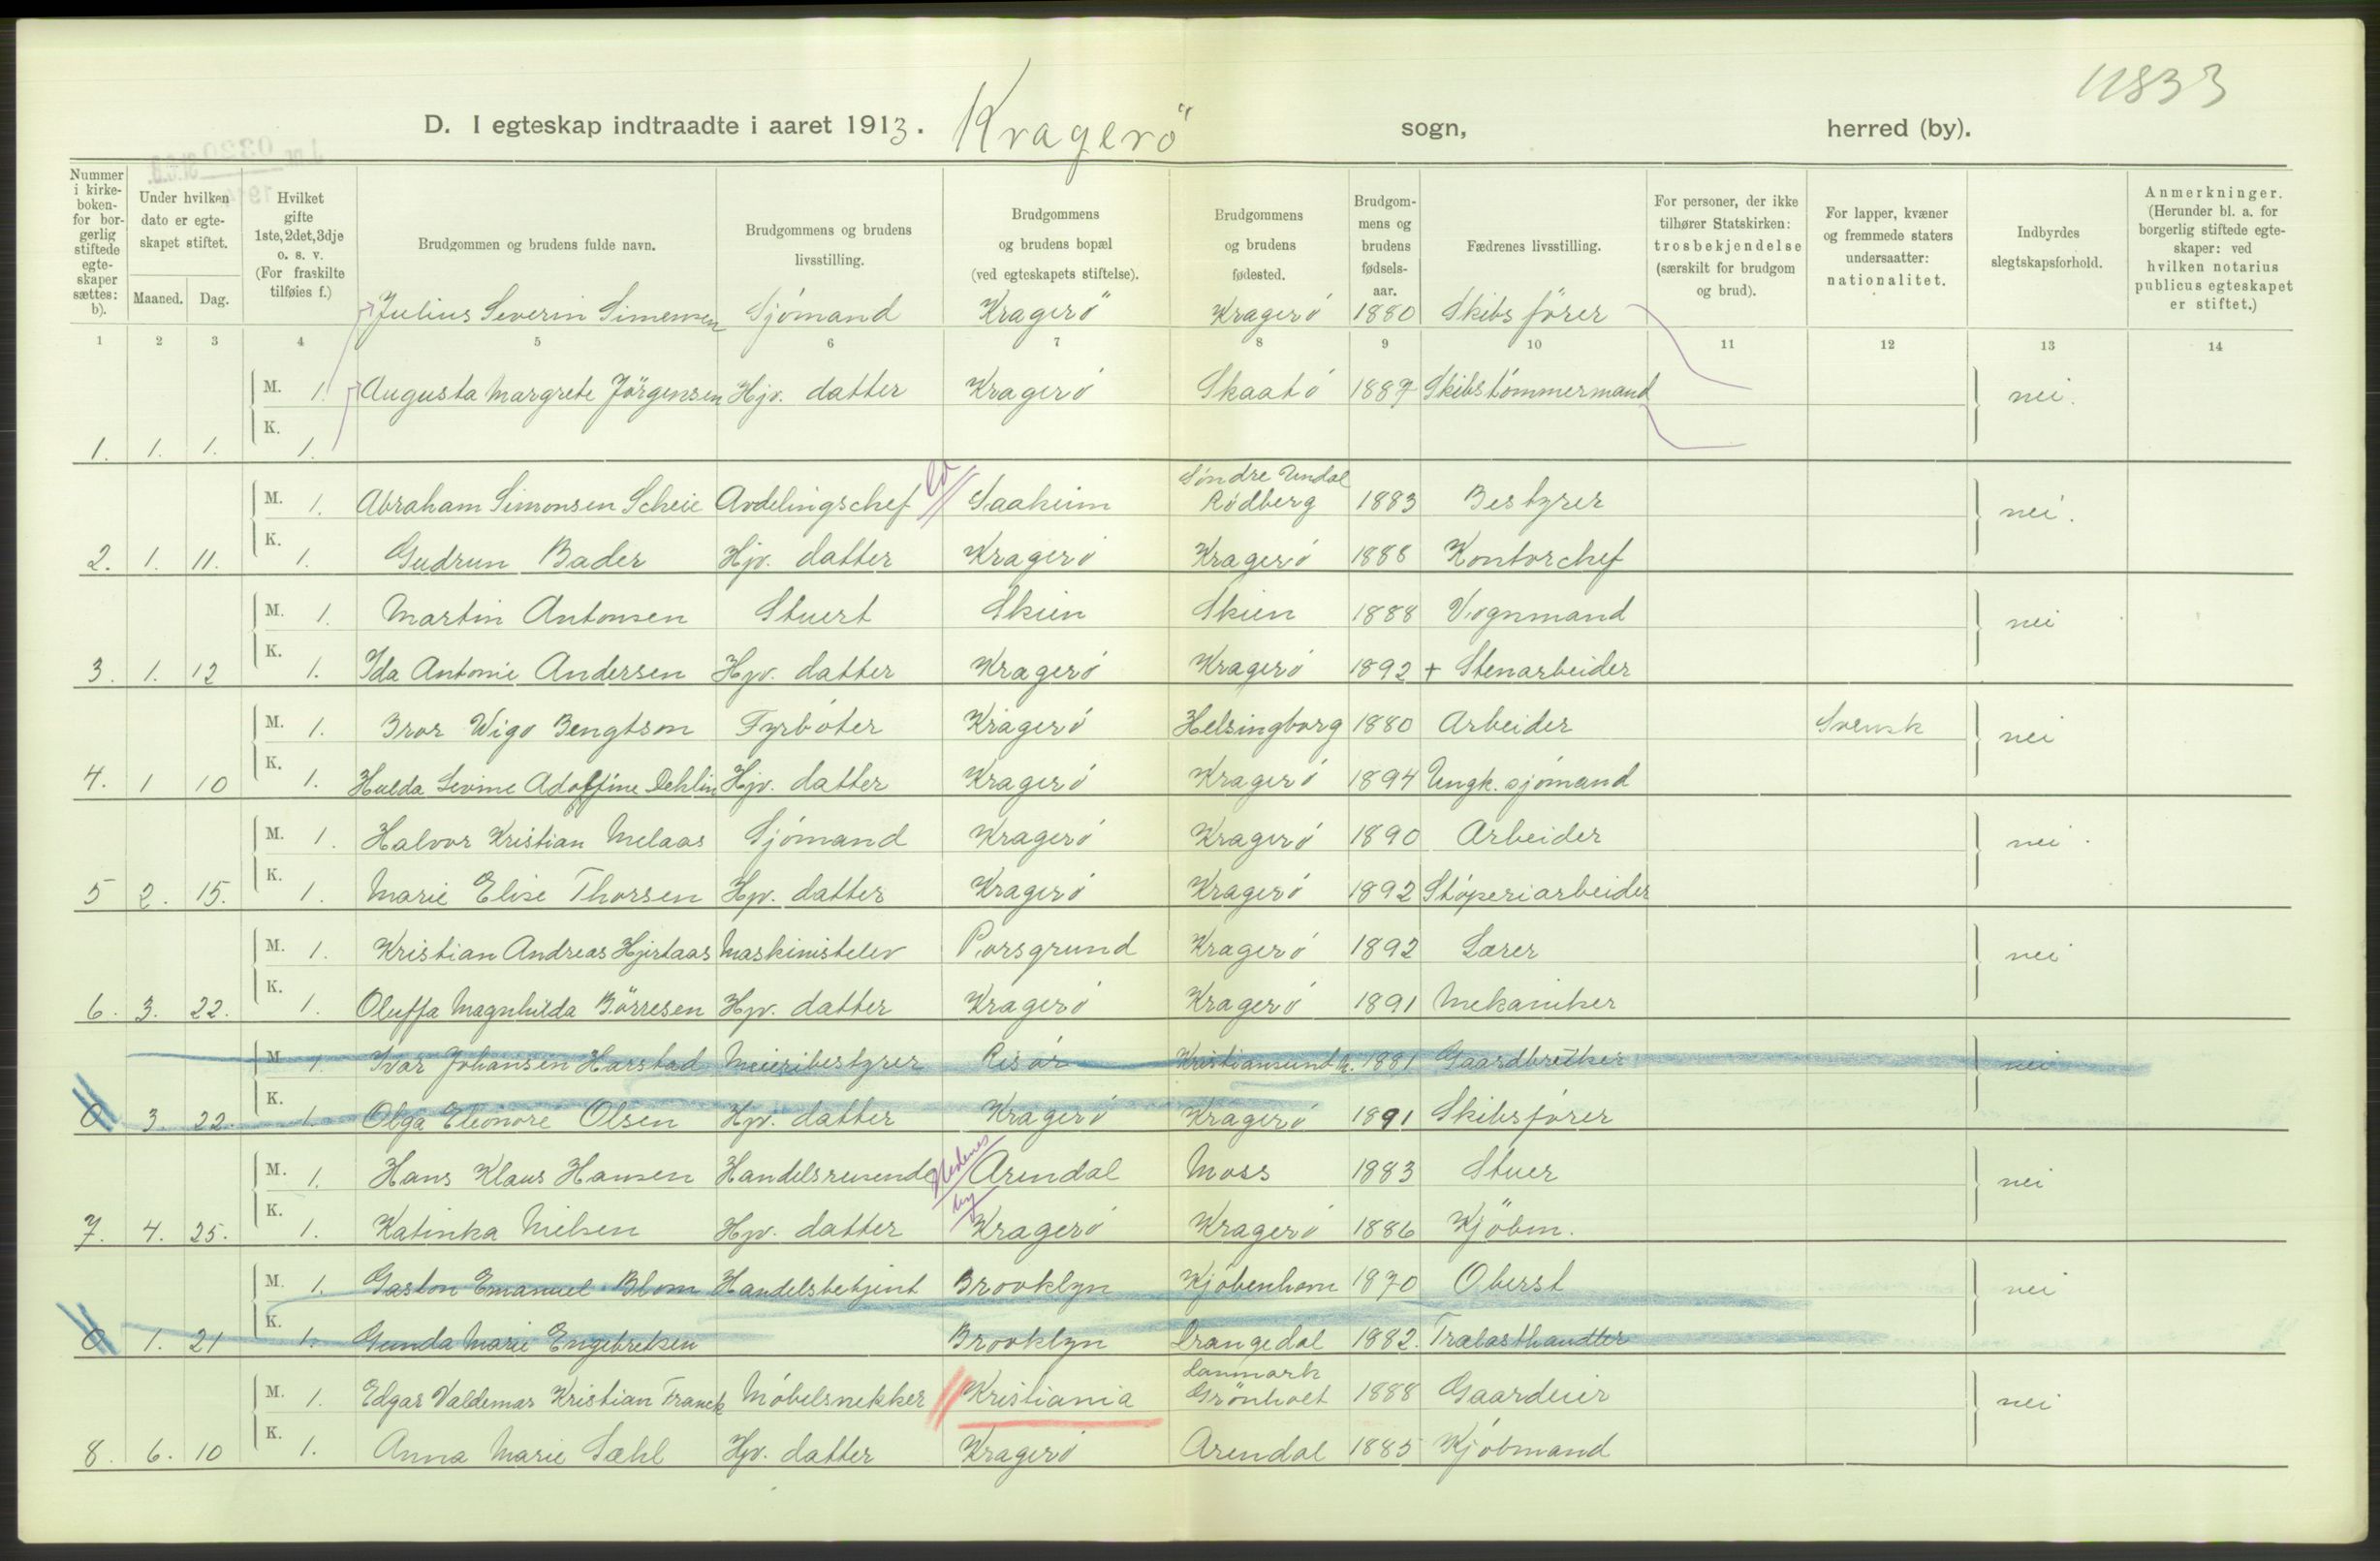 11833
D. I egteskap indtraadte i aaret 1913. Kragerö sogn, herred (by).
Nummer i kirke-boken- for bor-gerlig stiftede egte-skaper sættes: b).
Under hvilken dato er egte-skapet stiftet.
Maaned. Dag.
Hvilket gifte 1ste, 2det, 3dje o. s. v. (For fraskilte tilføies f.)
Brudgommen og brudens fulde navn.
Brudgommens og brudens livsstilling.
Brudgommens og brudens bopæl (ved egteskapets stiftelse).
Brudgommens og brudens fødested.
Brudgom-mens og brudens fødsels-aar.
Fædrenes livsstilling.
For personer, der ikke tilhører Statskirken: trosbekjendelse (særskilt for brudgom og brud).
For lapper, kvæner og fremmede staters undersaatter: nationalitet.
Indbyrdes slegtskapsforhold.
Anmerkninger. (Herunder bl. a. for borgerlig stiftede egte-skaper: ved hvilken notarius publicus egteskapet er stiftet.)
Julius Severin Simensen Sjömand Kragerö Kragerö 1880 Skibsförer
1 2 3 4 5 6 7 8 9 10 11 12 13 14
M. 1. Augusta Margrete Jörgensen Hjv. datter Kragerö Skaatö 1887 Skibstömmermand nei.
1. 1. 1. K. 1.
M. 1. Abraham Simonsen Scheie Avdelingschef Saaheim Söndre Undal Rödberg 1883 Bestyrer nei.
2. 1. 11. K. 1. Gudrun Bader Hjv. datter Kragerö Kragerö 1888 Kontorchef
M. 1. Martin Antonsen Stuert Skien Skien 1888 Vognmand nei
3. 1. 12 K. 1. Ida Antonie Andersen Hjv. datter Kragerö Kragerö 1892 + Stenarbeider
M. 1. Bror Wigo Bengtson Fyrböter Kragerö Helsingborg 1880 Arbeider Svensk nei
4. 1 10 K. 1. Hulda Sevine Adolfine Dehlin Hjv. datter Kragerö Kragerö 1894 Ungk. sjömand
M. 1. Halvor Kristian Melaas Sjömand Kragerö Kragerö 1890 Arbeider nei.
5 2. 15. K. 1. Marie Elise Thorsen Hjv. datter Kragerö Kragerö 1892 Stöperiarbeider
M. 1. Kristian Andreas Hjertaas Maskinistelev Porsgrund Kragerö 1892 Lærer nei
6. 3. 22. K. 1. Oluffa Magnhilda Börresen Hjv. datter Kragerö Kragerö 1891 Mekaniker
M. 1. Ivar Johansen Harstad Meieribestyrer Risör Kristiansund N. 1881 Gaardbruker nei
0 3. 22. K. 1. Olga Eleonore Olsen Hjv. datter Kragerö Kragerö 1891 Skibsförer
M. 1. Hans Klaus Hansen Handelsreisende Nedenes Arendal Moss 1883 Stuer nei
7. 4. 25. K. 1. Katinka Nielsen Hjv. datter by Kragerö Kragerö 1886 Kjöbm.
M. 1. Gaston Emanuel Blom Handelsbetjent Brooklyn Kjöbenhavn 1870 Oberst nei
0 1. 21 K. 1. Gunda Marie Engebretsen Brooklyn Drangedal 1882. Trælasthandler
M. 1. Edgar Valdemar Kristian Franck Möbelsnekker Kristiania Danmark Grönholt 1888 Gaardeier nei
8. 6. 10 K. 1. Anna Marie Sæhl Hjv. datter Kragerö Arendal 1885 Kjöbmand